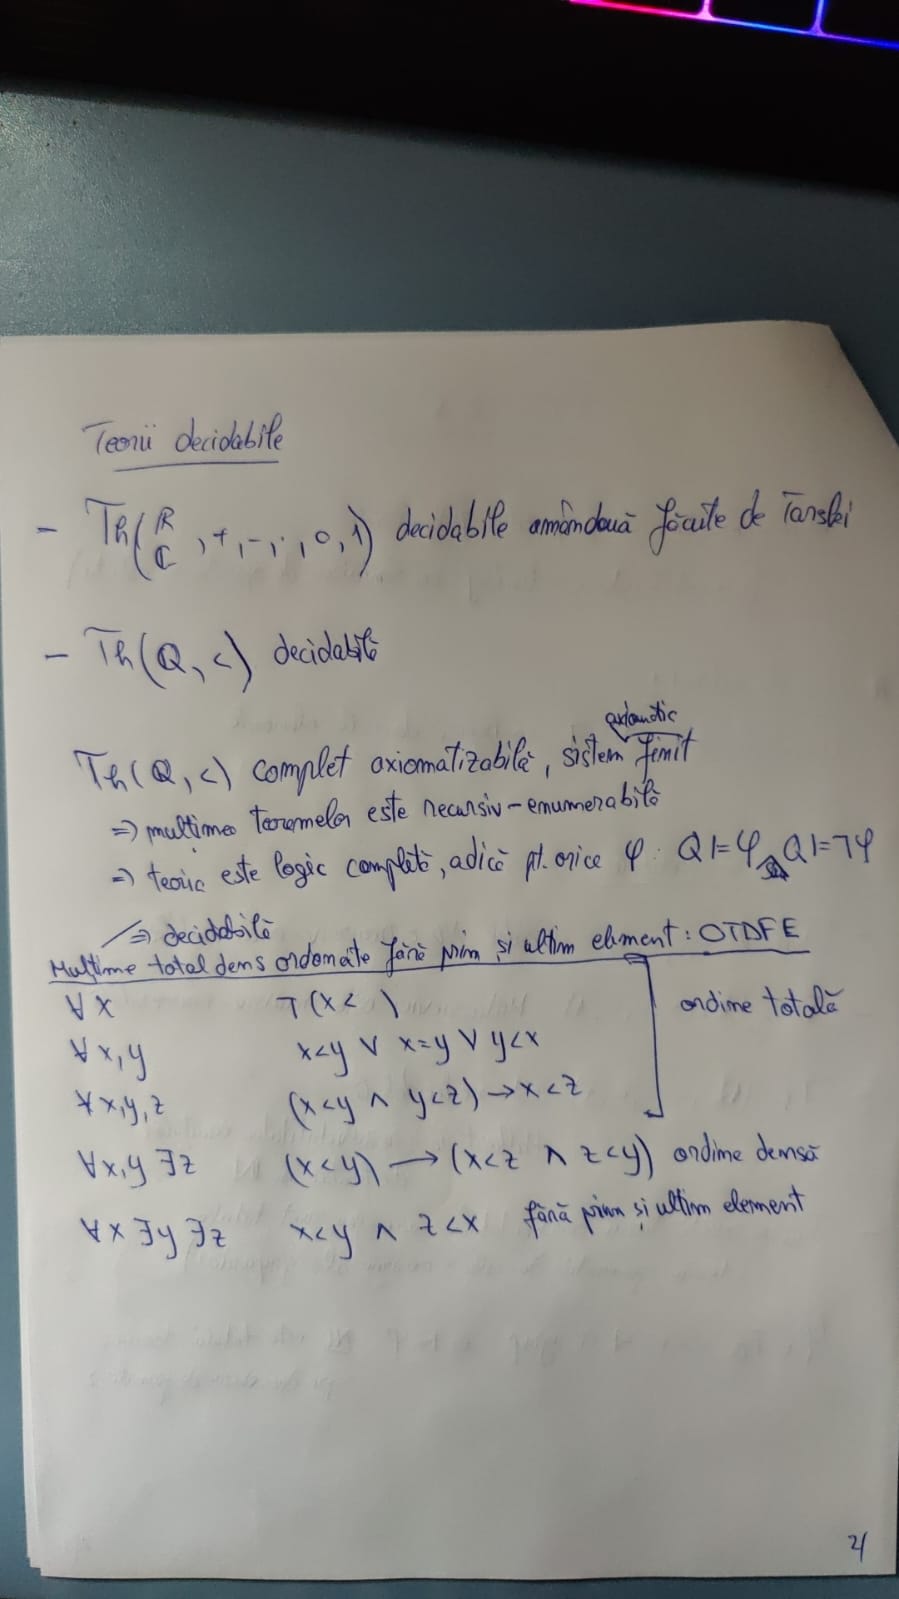 Teorii decidabile
- Th(ℝ ℂ, +, -, ·, 0, 1) decidabile amândouă făcute de Tarski
- Th(Q, <) decidabilă
axiomatic
Th(Q, <) complet axiomatizabilă, sistem finit
=> mulțimea teoremelor este recursiv-enumerabilă
=> teoria este logic completă, adică pt. orice φ : Q |= φ Q |= ¬φ
=> decidabilă
Mulțime total dens ordonate fără prim și ultim element: OTDFE
∀x ¬(x< )
∀x,y x<y ∨ x=y ∨ y<x
∀x,y,z (x<y ∧ y<z) → x<z
ordine totală
∀x,y ∃z (x<y) → (x<z ∧ z<y) ordine densă
∀x ∃y ∃z x<y ∧ z<x fără prim și ultim element
2/